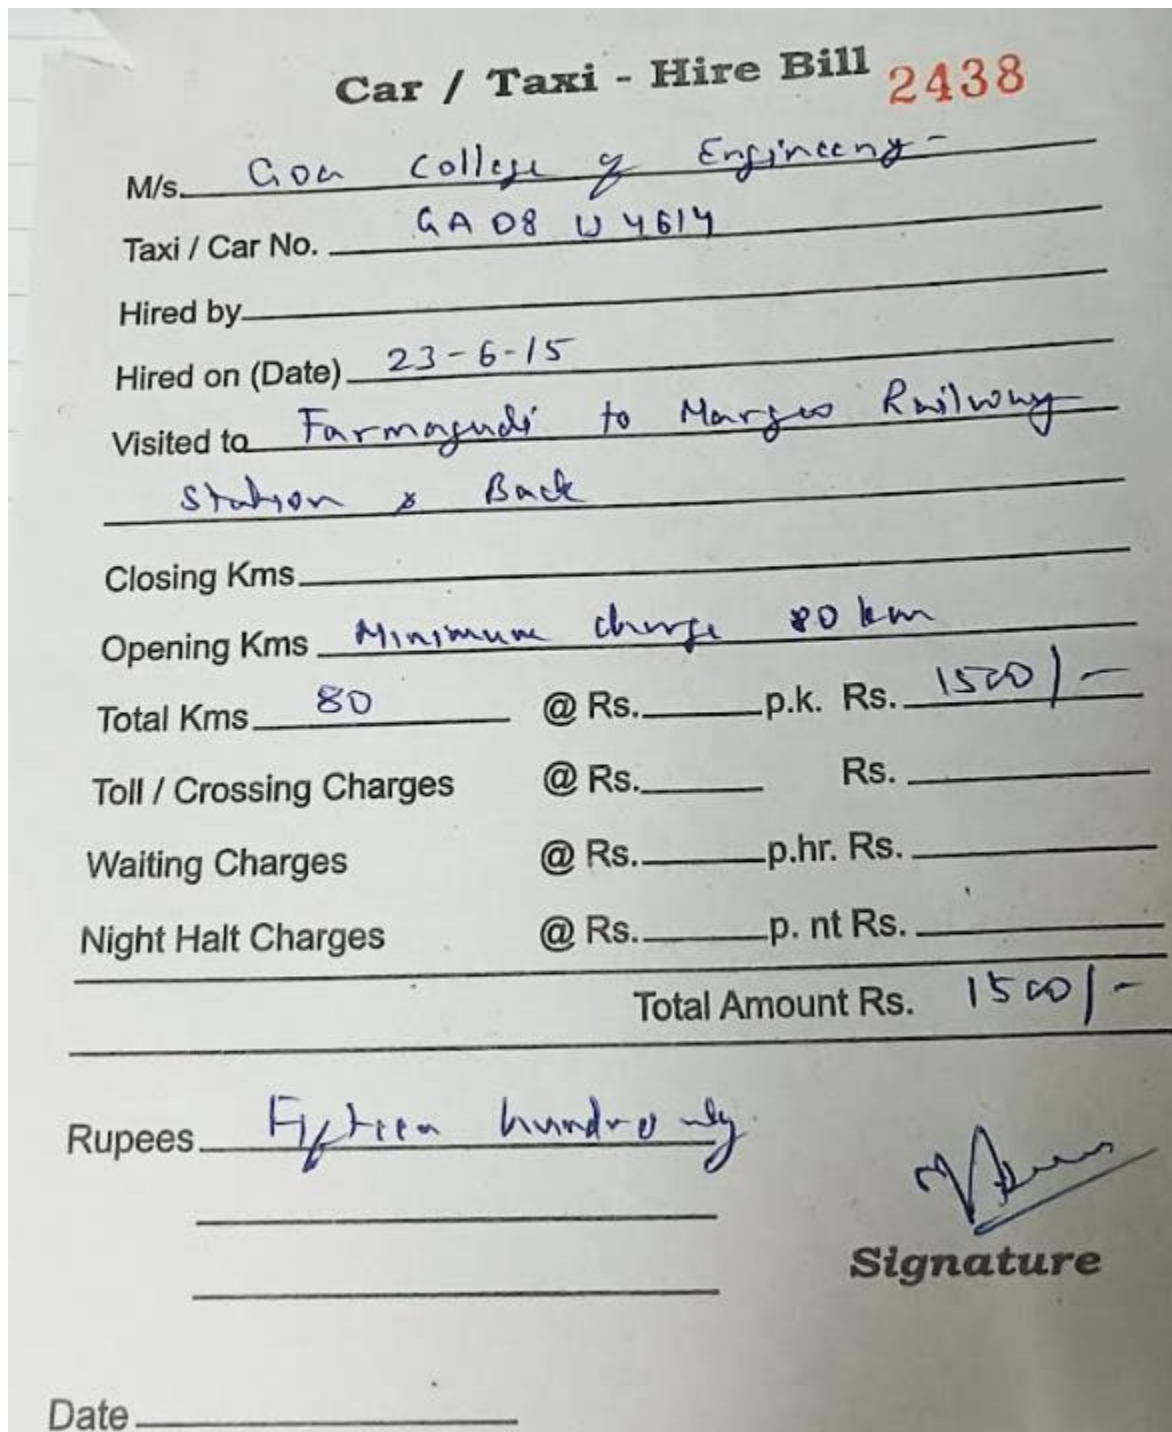 Car / Taxi - Hire Bill 2438
M/s. Goa College of Engineering -
Taxi / Car No. GA 08 W 4614
Hired by
Hired on (Date) 23-6-15
Visited to Farmagudi to Margao Railway
Station & Back
Closing Kms
Opening Kms Minimum charge 80 km
Total Kms 80 @ Rs. p.k. Rs. 1500/-
Toll / Crossing Charges @ Rs. Rs.
Waiting Charges @ Rs. p.hr. Rs.
Night Halt Charges @ Rs. p. nt Rs.
Total Amount Rs. 1500/-
Rupees Fifteen hundred only
Signature
Date